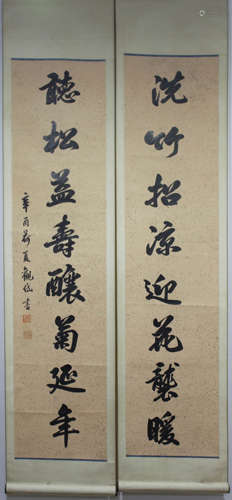 洗竹招涼迎花襲暖
聽松益壽釀菊延年
辛酉初夏觀岱書